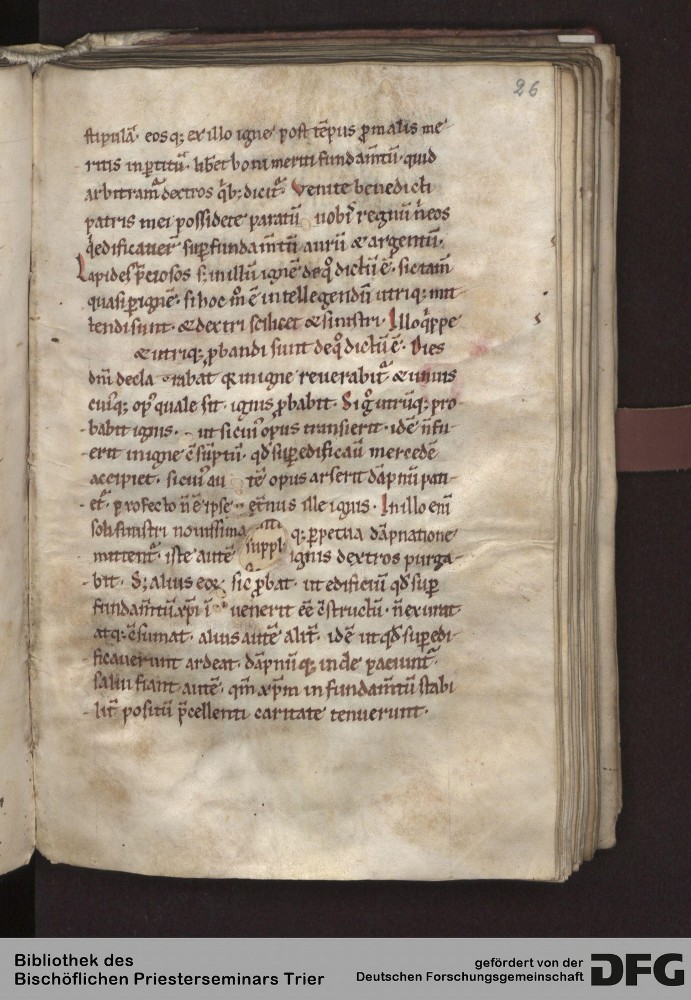 26
stipulā. eosq; ex illo igne post tēpus ꝓ malis me
ritis inꝑtitū. libet boni meriti fundam̄tū. quid
arbitram̄ dextros qͥb; dicit̄. Venite benedicti
patris mei possidete paratū uobis regnū. n̄ eos
q̇ edificauer̄ suꝑ fundam̄tū aurū & argentū.
Lapides p̄ciosos. s; in illū ignē de qͦ dictū ē. sic tam̄
quasi ꝑ ignē. si hoc m̄ ē intellegendū utriq; mit
tendi sunt. & dextri scilicet & sinistri. Illo q̇ppe
& utriq; ꝓbandi sunt de qͦ dictū ē. Dies
dn̄i declarabat qͥ in igne reuerabit̄. & unius
cuiꝰq; opꝰ quale sit. ignis ꝓbabit. Si gͦ utrūq; pro
babit ignis. ut si cuiꝰ opus transierit. idē n̄ fu
erit in igne c̄sūptū. qd̄ suꝑedificauit mercedē
accipiet. si cuiꝰ autē opus arserit dāpnū pati
et̄. profecto n̄ ē ipse et̄nus ille ignis. In illo eni
soli sinistri nouissima q; ꝑpetua dāpnatione
suppl
mittent̄. iste autē ignis dextros purga
bit. S; alios eoꝝ sic ꝓbat. ut edificiū qd̄ suꝑ
fundam̄tū xp̄i inuenerit eē c̄structū. n̄ exurat
atq; c̄sumat. alios autē alit̄. idē ut qd̄ suꝑedi
ficauerunt ardeat. dāpnūq; inde paciunt̄.
salui fiant autē. qm̄ xp̄m in fundam̄tū stabi
lit̄ positū p̄cellenti caritate tenuerunt.
Bibliothek des
Bischöflichen Priesterseminars Trier
gefördert von der
Deutschen Forschungsgemeinschaft
DFG